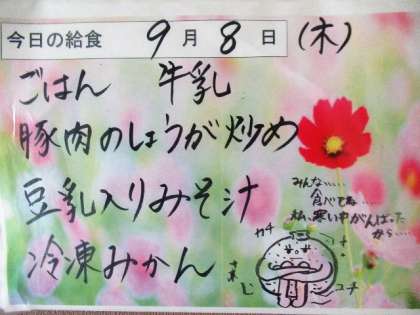 今日の給食 9月8日(木)
ごはん 牛乳
豚肉のしょうが炒め
豆乳入りみそ汁
冷凍みかん
みんな……
食べてね…
私、寒い中がんばった
から……
ガチ